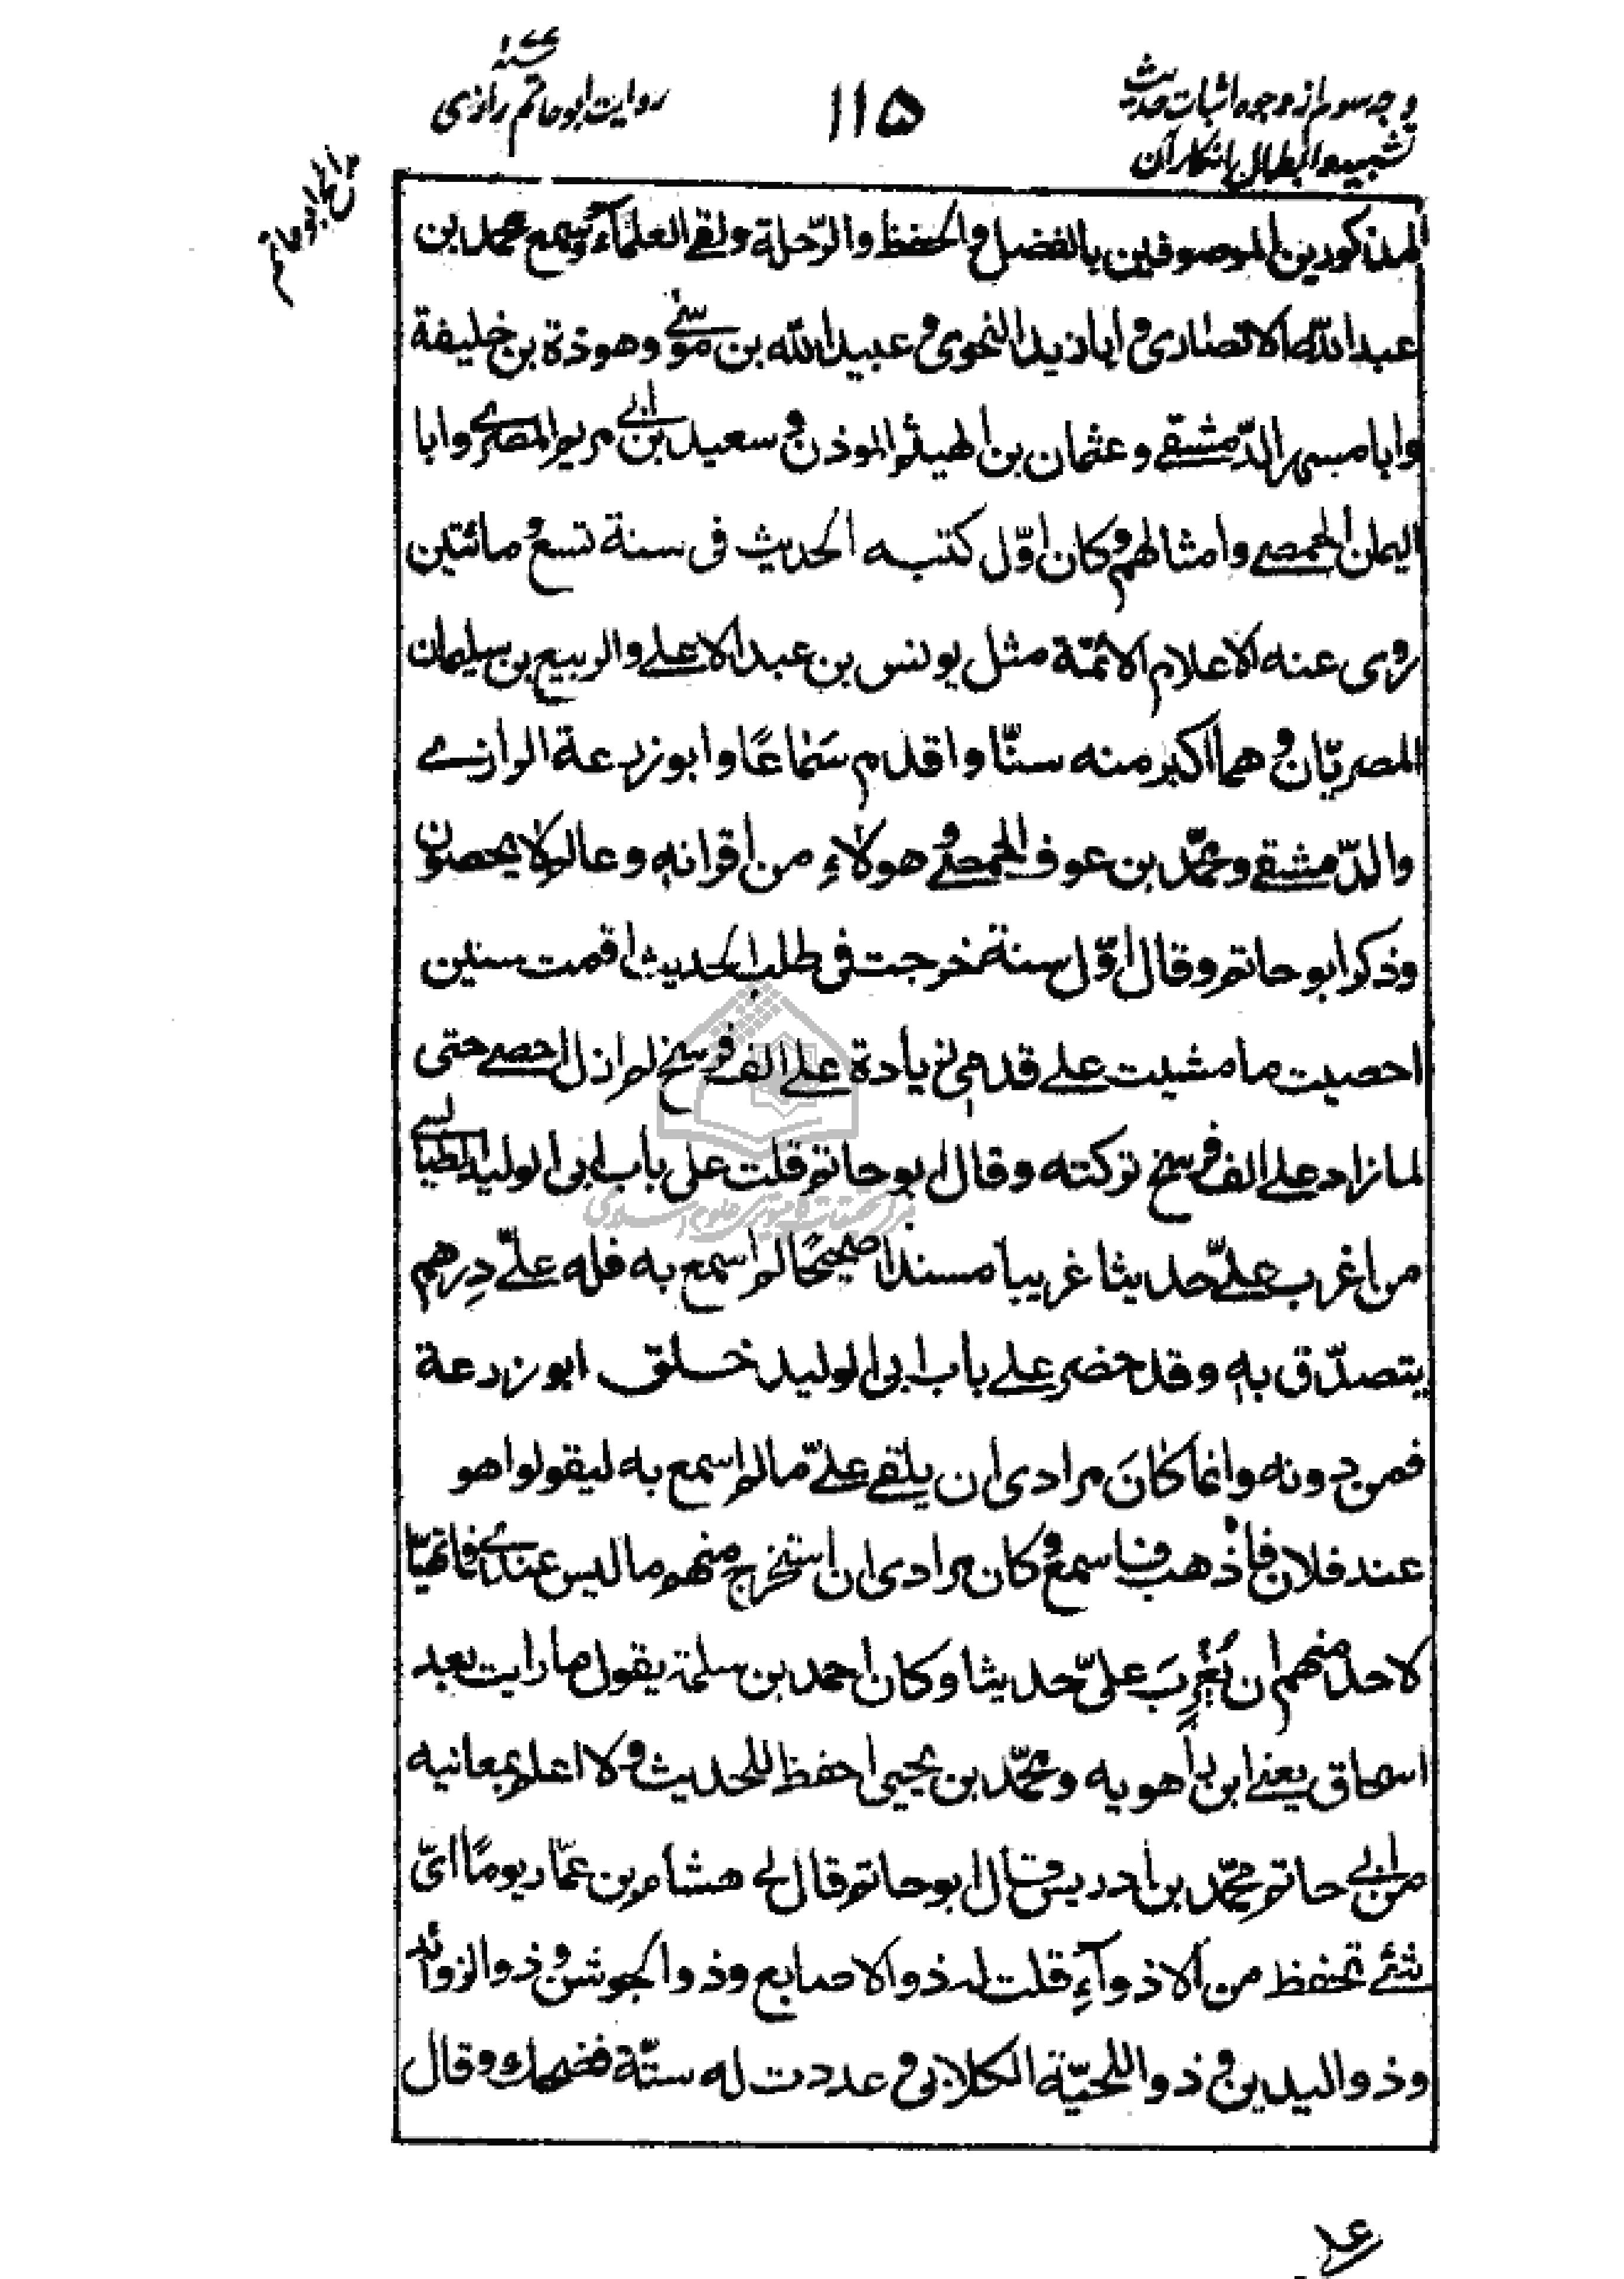 وجه سوم از وجوه اثبات حدیث
تشبیه و ابطال انکار آن
١١۵
روایت ابو حاتم رازی
مدائح ابو حاتم
المذكورين الموصوفين بالفضل و الحفظ والرّحلة ولقى العلماء و سمع محمد بن
عبد الله الانصارى و ابا زيد النحوى و عبيد الله بن موسى وهوذة بن خليفة
وابا مسهر الدّمشقى وعثمان بن الهيثم الموذن و سعيد بن ابى مريم المصرى وابا
اليمان الحمصى وامثالهم و كان اوّل كتبه الحديث فى سنة تسع و مائتين
روى عنه الاعلام الائمّة مثل يونس بن عبد الاعلى والربيع بن سليمان
المصريّان و هما اكبر منه سنّا واقدم سَمَاعًا وابو زرعة الرازى
والدّمشقى ومحمّد بن عوف الحمصى و هولاءِ من اقرانه وعالم لا يحصون
وذكر ابو حاتم وقال اوّل سنة خرجت فى طلب الحديث اقمت سنين
احصيت ما مشيت على قدمى زيادة على الف فرسخ لم ازل احصى حتى
لما زاد على الف فرسخ تركته وقال ابو حاتم قلت على باب ابى الوليد الطيالسى
من اغرب علىّ حديثا غريبا مسندا صحيحًا لم اسمع به فله علىّ دِرهم
يتصدّق به وقد حضر على باب ابى الوليد خلق ابو زرعة
فمن دونه وانما كانَ مرادى ان يلقى علىّ ما لم اسمع به ليقولوا هو
عند فلان فاذهب فاسمع و كان مرادى ان استخرج منهم ما ليس عندى فما تهيّا
لاحد منهم ان يُغْرِبَ علىّ حديثا وكان احمد بن سلمة يقول ما رايت بعد
اسحاق يعنى ابن راهويه ومحمّد بن يحيى احفظ للحديث و لا اعلم بمعانيه
من ابى حاتم محمّد بن ادريس قال ابو حاتم قال لى هشام بن عمّار يومًا اىّ
شئ تحفظ من الاذوآءِ قلت له ذو الاصابع وذو الجوشن و ذو الزوائد
وذو اليدين و ذو اللحيّة الكلابى و عددت له ستّة فضحك وقال